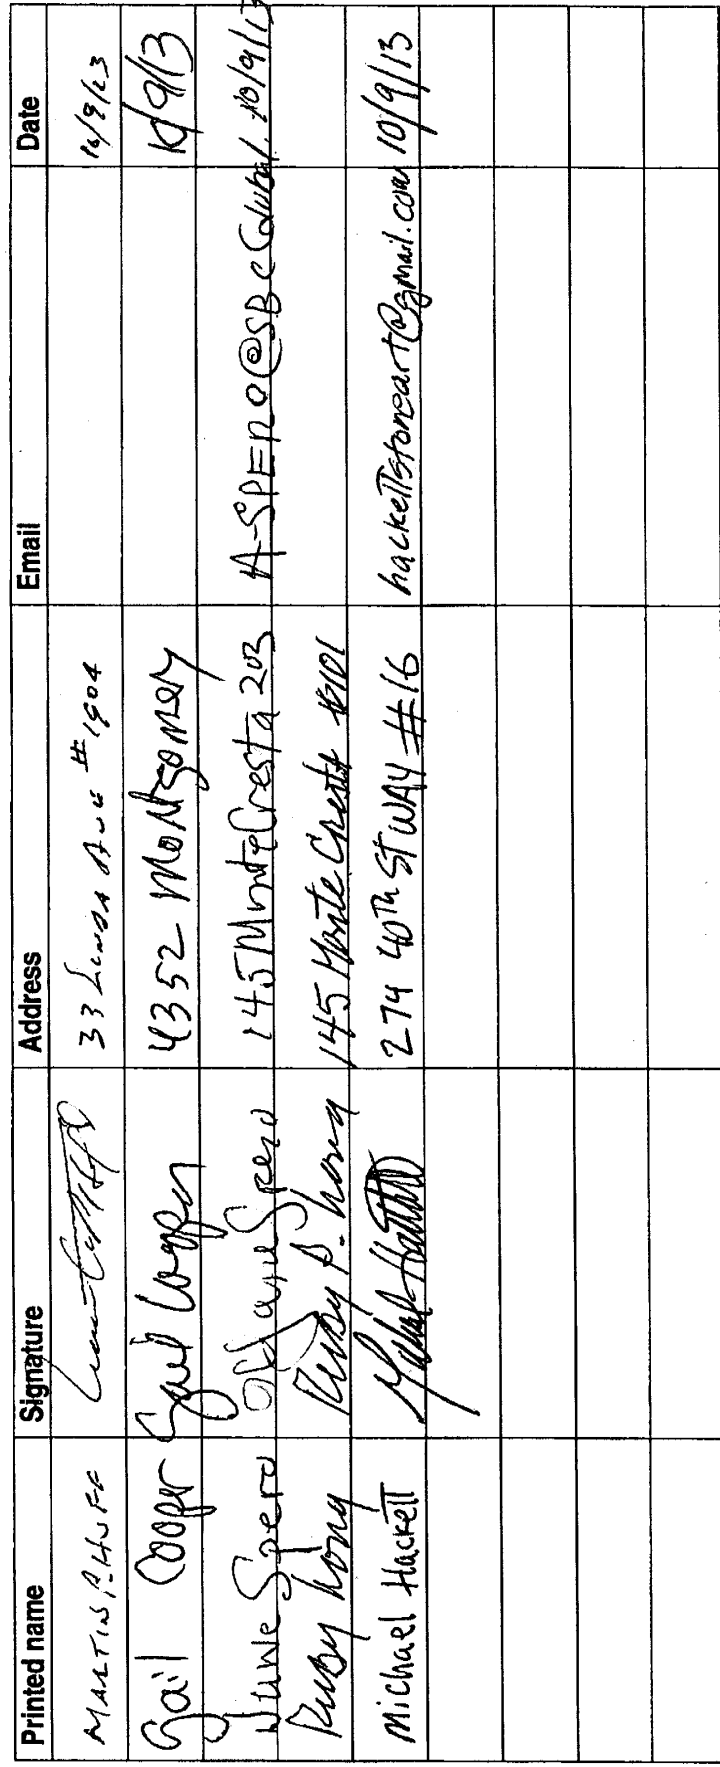 Printed name Signature Address Email Date
MARTIN P. HUFF 33 LINDA AVE #1904
Gail Cooper Gail Cooper 4352 Montgomery 10/9/13
June Spero June Spero 145 Monte Cresta 203 A-SPERO@SBCGlobal. 10/9/13
Ruby Long Ruby A. Long 145 Monte Cresta #101
Michael Hackett 274 40TH ST WAY #16 hackettstoneart@gmail.com 10/9/13